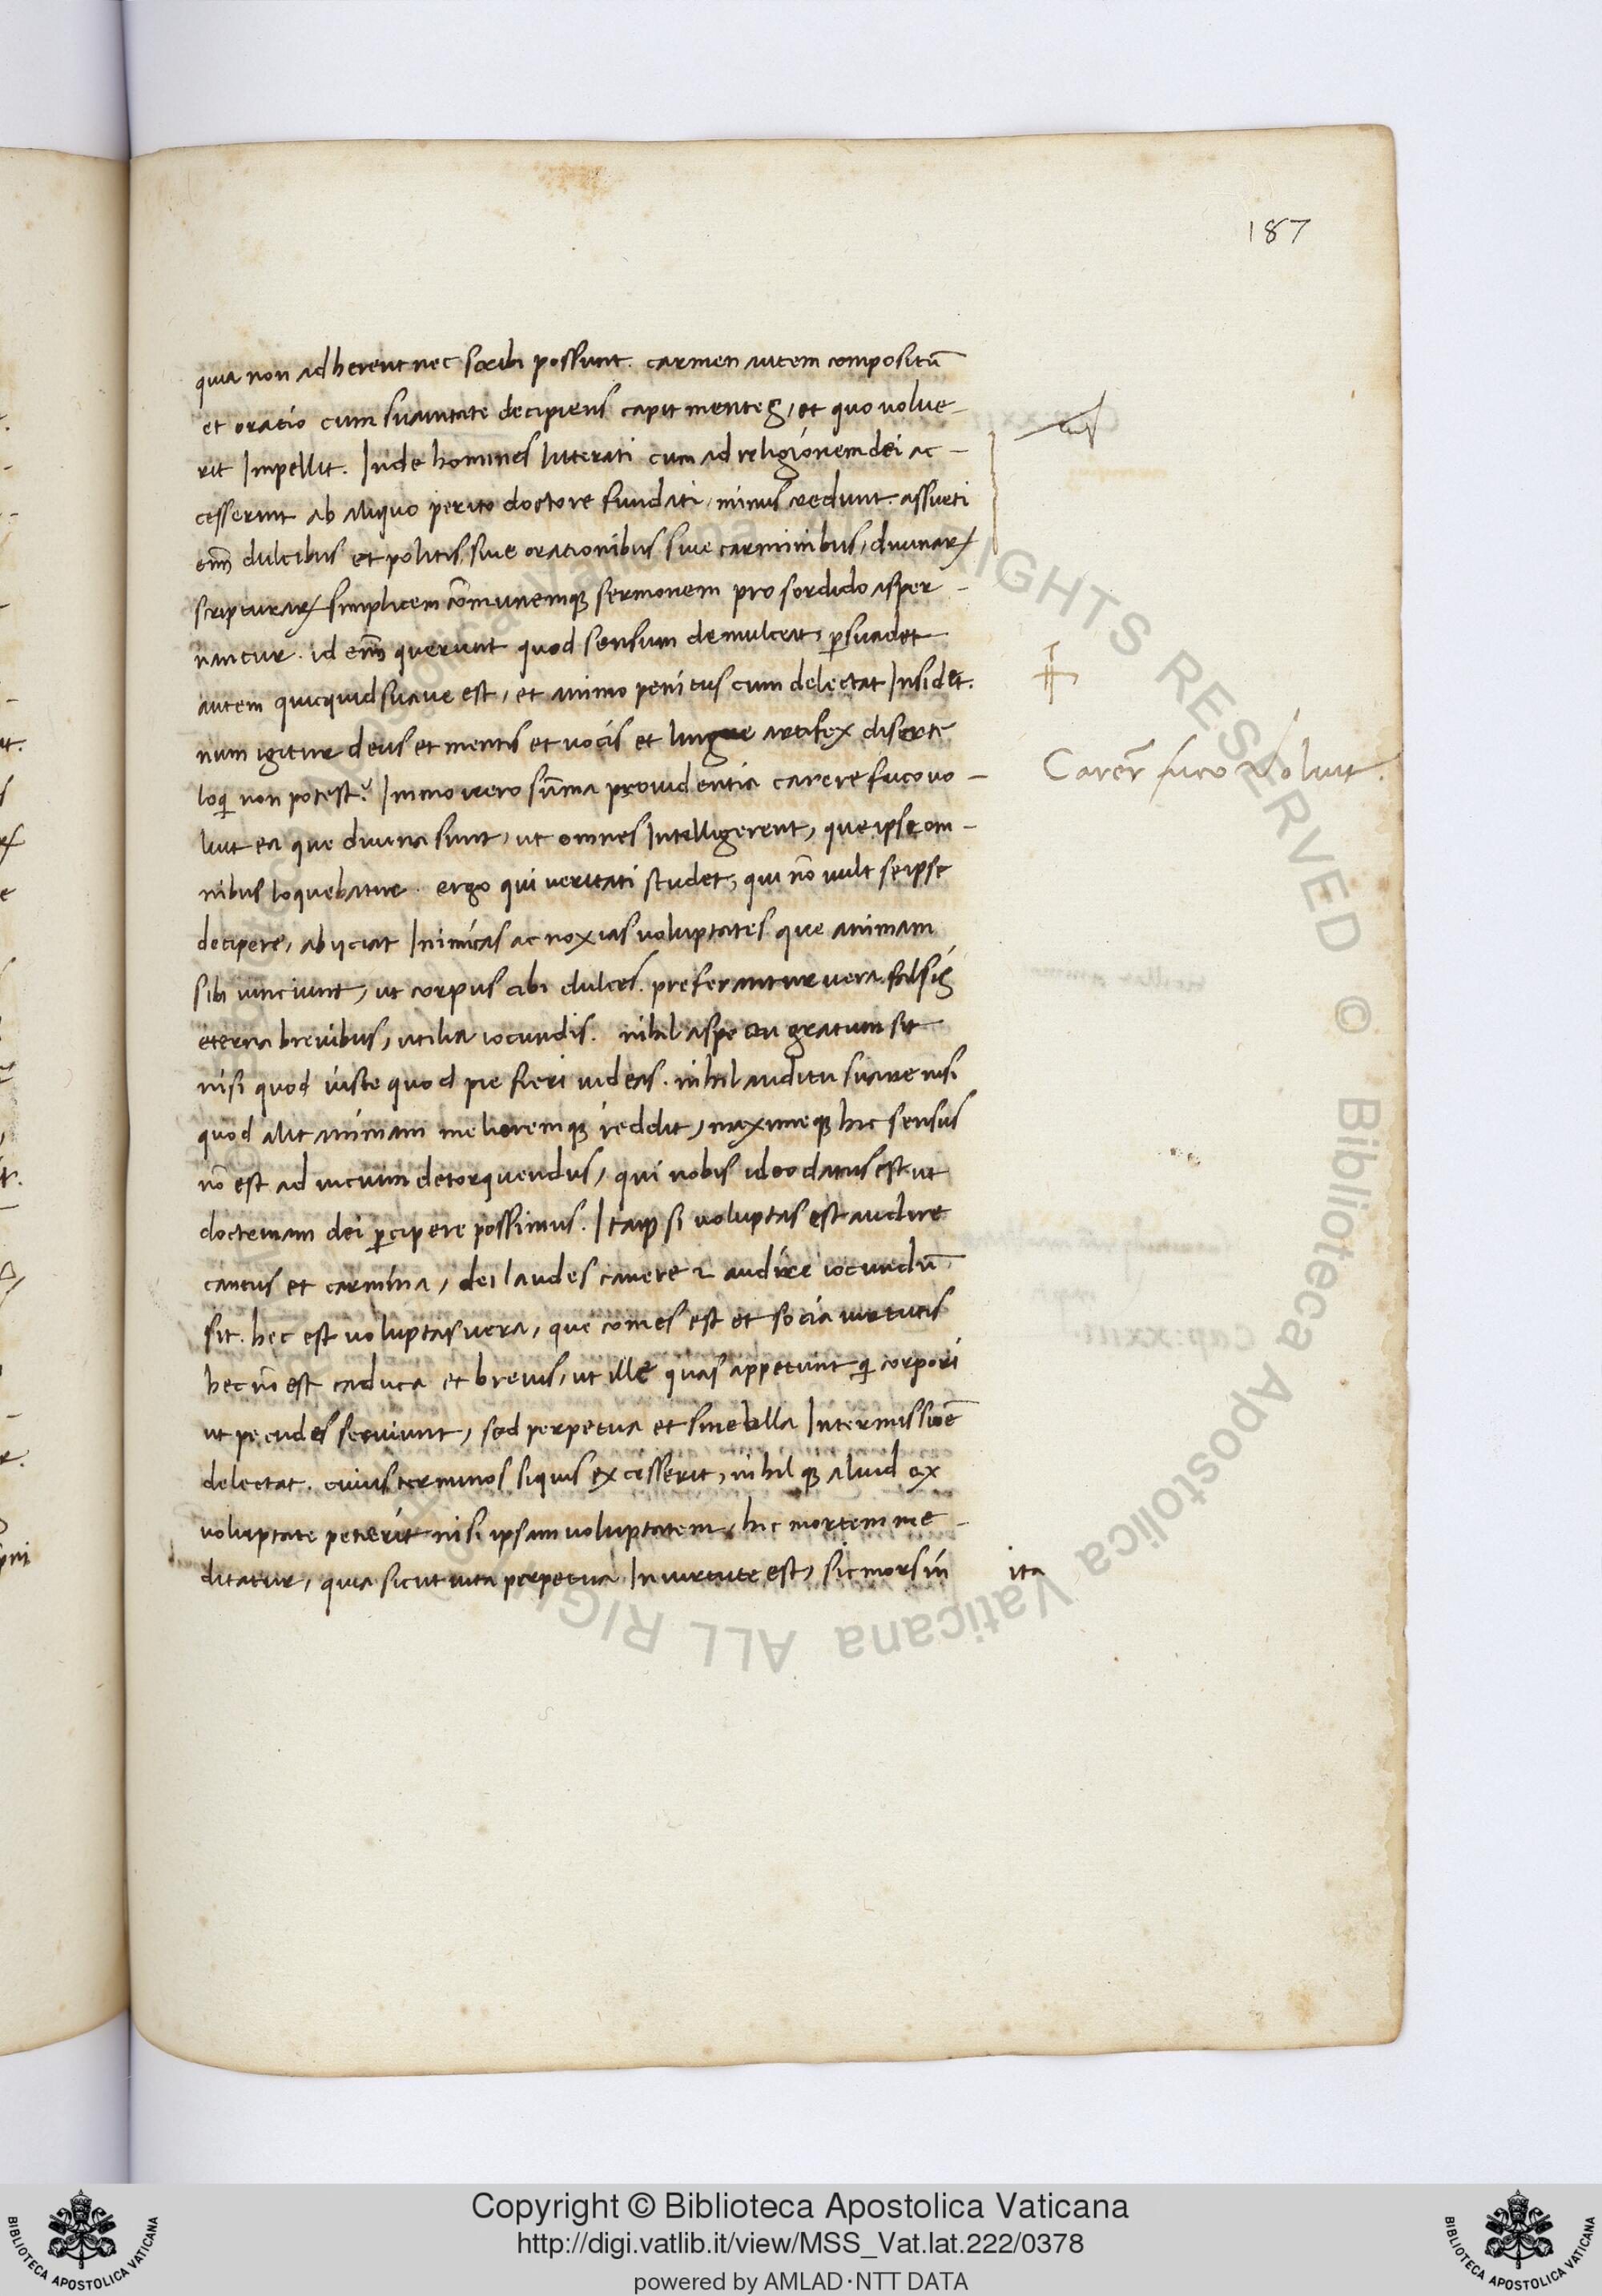 187
quia non adherent nec scribi possunt. carmen autem compositū
et oratio cum suavitate decipiens capit mentes, et quo volue-
rit Impellit. Inde homines litterati cum ad religionem dei ac-
cesserint ab aliquo perito doctore fundati, minus credunt. assueti
eni͞m dulcibus et politis, sive orationibus sive carminibus, divinaꝝ
scripturaꝝ simplicem cōmunemqꝫ sermonem pro sordido asper-
nantur. id eni͞m querunt quod sensum demulceat, ꝑsuadet
autem quicquid suave est, et animo penitus cum delectat Insidet.
num igitur deus et mentis et vocis et lingue artifex diserte
loqi non potest? Immo vero sūma providentia carere fuco vo-
Carer̄ fuco voluit.
luit ea que divina sunt, ut omnes Intelligerent, que ipse om-
nibus loquebatur. ergo qui veritati studet, qui nō vult seipse
decipere, abijciat Inimicas ac noxias voluptates que animam
sibi vinciunt, ut corpus cibi dulces. preferantur vera falsis
eterna brevibus, utilia iocundis. nihil aspectu gratum sit
nisi quod iuste quod pie fieri videas. nihil auditu suave nisi
quod alit animam melioremqꝫ reddit, maximeqꝫ hic sensus
nō est ad vicium detorquendus, qui nobis ideo datus est ut
doctrinam dei ꝑcipere possimus. Itaqꝫ si voluptas est audire
cantus et carmina, dei laudes canere ⁊ audire iocundū
sit. hec est voluptas vera, que comes est et socia virtutis
hec nō est caduca et brevis, ut ille quas appetunt qi corpori
ut pecudes serviunt, sed perpetua et sine ulla Intermissiōe
delectat. cuius terminos siquis excesserit, nihilqꝫ aliud ex
voluptate petierit nisi ipsam voluptatem, hic mortem me-
ditatur, quia sicut vita perpetua In virtute est, sic mors in
ita
ALL RIGHTS RESERVED © Biblioteca Apostolica Vaticana
BIBLIOTECA APOSTOLICA VATICANA
Copyright © Biblioteca Apostolica Vaticana
http://digi.vatlib.it/view/MSS_Vat.lat.222/0378
powered by AMLAD·NTT DATA
BIBLIOTECA APOSTOLICA VATICANA